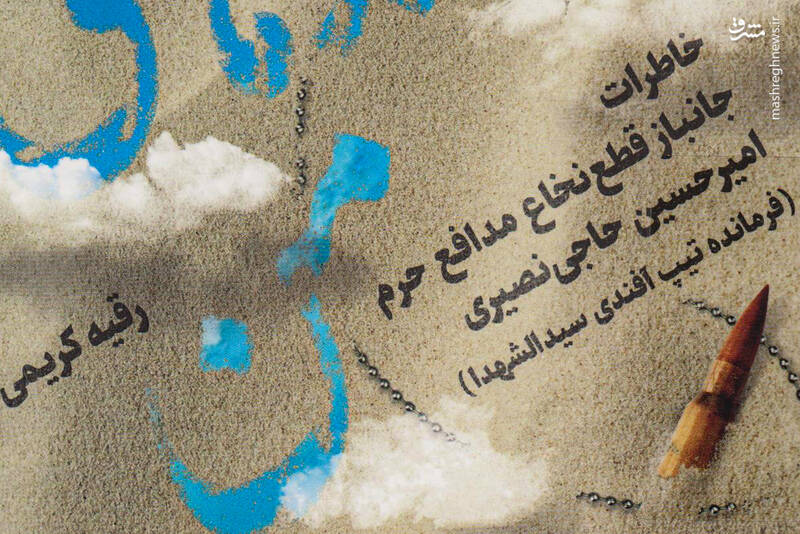 خاطرات
جانباز قطع نخاع مدافع حرم
امیرحسین حاجی‌نصیری
(فرمانده تیپ آفندی سیدالشهدا)
رقیه کریمی
مشرق
mashreghnews.ir